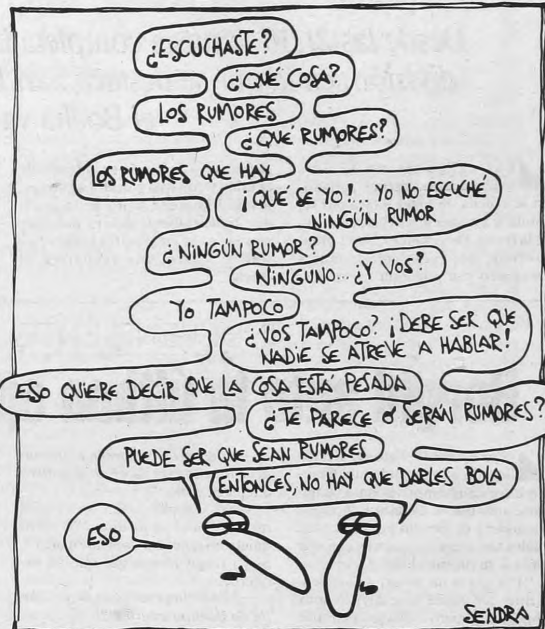 ¿ESCUCHASTE?
¿QUÉ COSA?
LOS RUMORES
¿QUÉ RUMORES?
LOS RUMORES QUE HAY
¡QUE SE YO!... YO NO ESCUCHÉ
NINGÚN RUMOR
¿NINGÚN RUMOR?
NINGUNO... ¿Y VOS?
YO TAMPOCO
¿VOS TAMPOCO? ¡DEBE SER QUE
NADIE SE ATREVE A HABLAR!
ESO QUIERE DECIR QUE LA COSA ESTÁ PESADA
¿TE PARECE O SERÁN RUMORES?
PUEDE SER QUE SEAN RUMORES
ENTONCES, NO HAY QUE DARLES BOLA
ESO
SENDRA